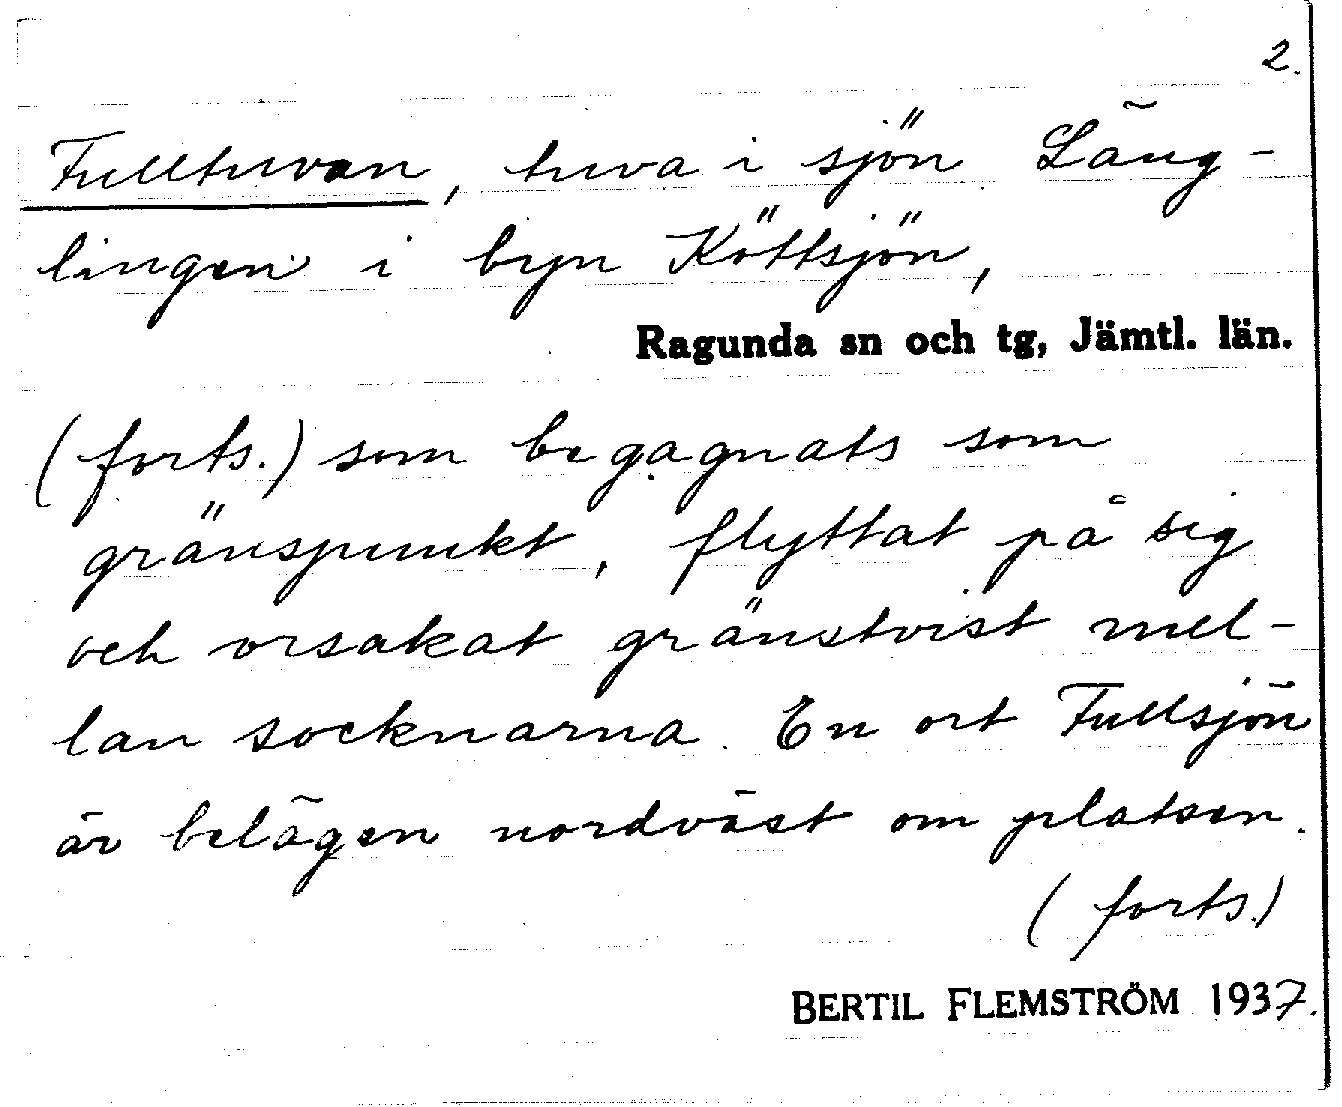 2.
Fulltuvan, tuva i sjön Läng-
lingen i byn Köttsjön,
Ragunda sn och tg, Jämtl. län.
(forts.) som begagnats som
gränspunkt, flyttat på sig
och orsakat gränstvist mel-
lan socknarna. En ort Fullsjön
är belägen nordväst om platsen.
(forts.)
BERTIL FLEMSTRÖM 1937.